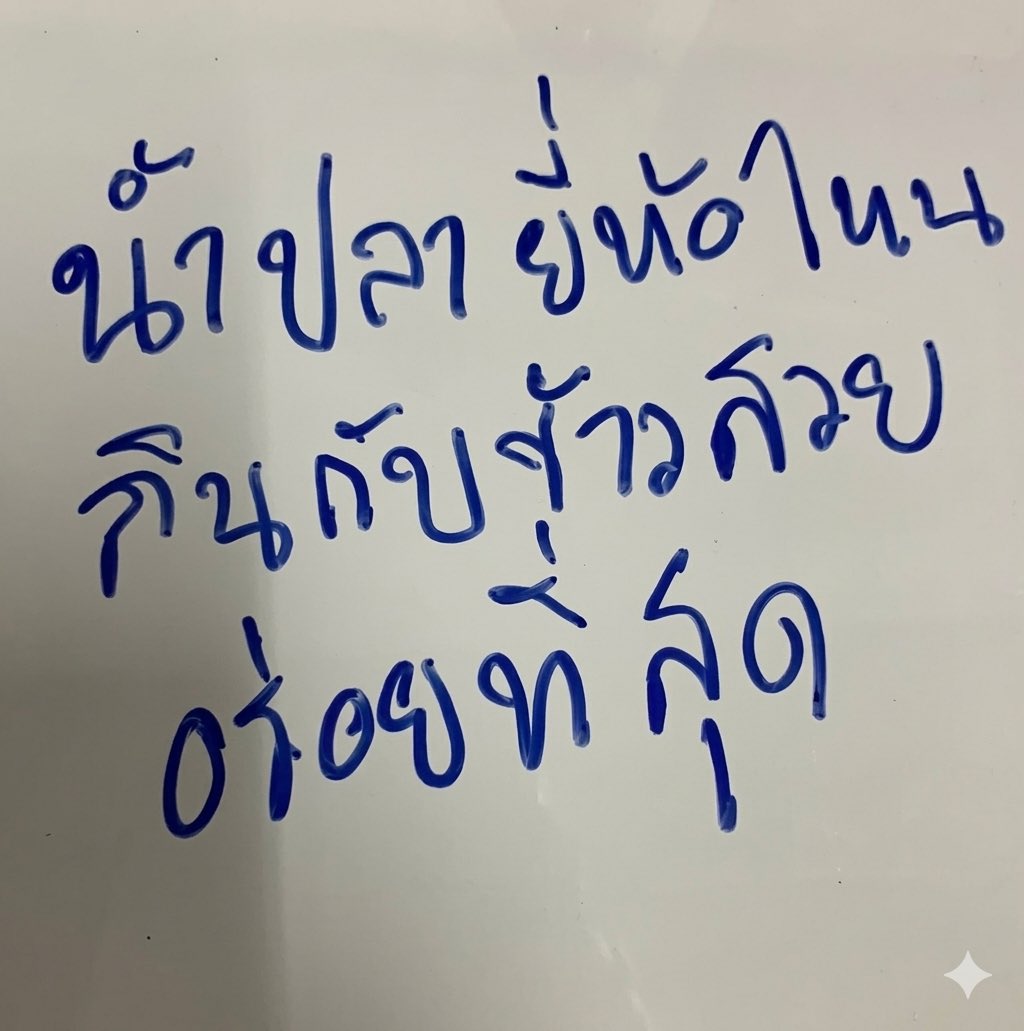 น้ำปลา ยี่ห้อไหน
กินกับข้าวสวย
อร่อยที่สุด